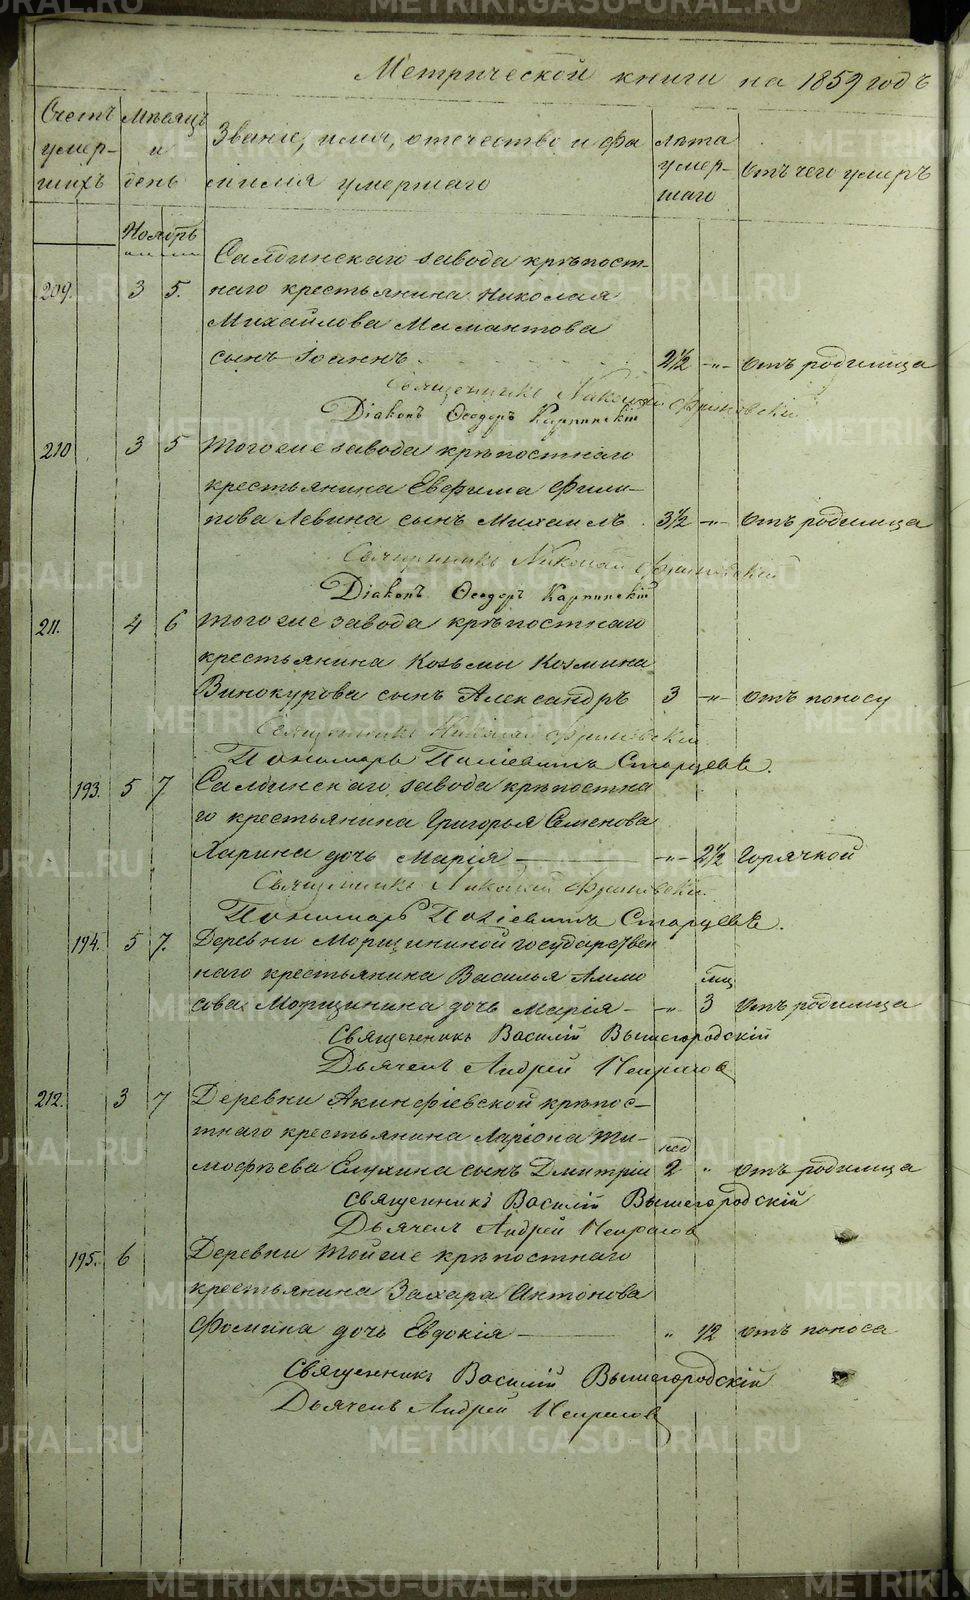 Метрической книги на 1859 годъ
Счетъ умер- шихъ
Мѣсяцъ и день
Званіе, имя, отечество и фа
милия умершаго
лѣта умер- шаго
отъ чего умеръ
Ноябрь
Салдинскаго завода крѣпост-
209. 3 5. наго крестьянина Николая
Михайлова Мамантова
сынъ Іоаннъ 2½ -"- отъ родимца
Священникъ Николай
Діаконъ Ѳеодоръ Карпинскій
210 3 5 Тогоже завода крѣпостнаго
крестьянина Евфима Фили-
пова Левина сынъ Михаилъ 3½ -"- отъ родимца
Священникъ Николай
Діаконъ Ѳеодоръ Карпинскій
211. 4 6 Тогоже завода крѣпостнаго
крестьянина Козьмы Козмина
Винокурова сынъ Александръ 3 -"- отъ поносу
Священникъ Николай
Пономарь Старцевъ.
193. 5 7 Салдинскаго завода крѣпостна
го крестьянина Григорья Семенова
Харина дочь Марія -"- 2½ Горячкой
Священникъ Николай
Пономарь Старцевъ.
194. 5 7. Деревни Морщининой государствен
наго крестьянина Василья Аммо
мѣц
сова Морщинина дочь Марія - -"- 3 отъ родимца
Священникъ Василій Вышегородскій
Дьячекъ Андрей
212. 3 7 Деревни Акинфіевской крѣпос-
тнаго крестьянина Ларіона Ти-
нед
мофѣева Елухина сынъ Дмитрій 2 " отъ родимца
Священникъ Василій Вышегородскій
Дьячекъ Андрей
195. 6 Деревни Тойже крѣпостнаго
крестьянина Захара Антонова
Фомина дочь Евдокія " ½ отъ поноса
Священникъ Василій Вышегородскій
Дьячекъ Андрей
METRIKI.GASO-URAL.RU